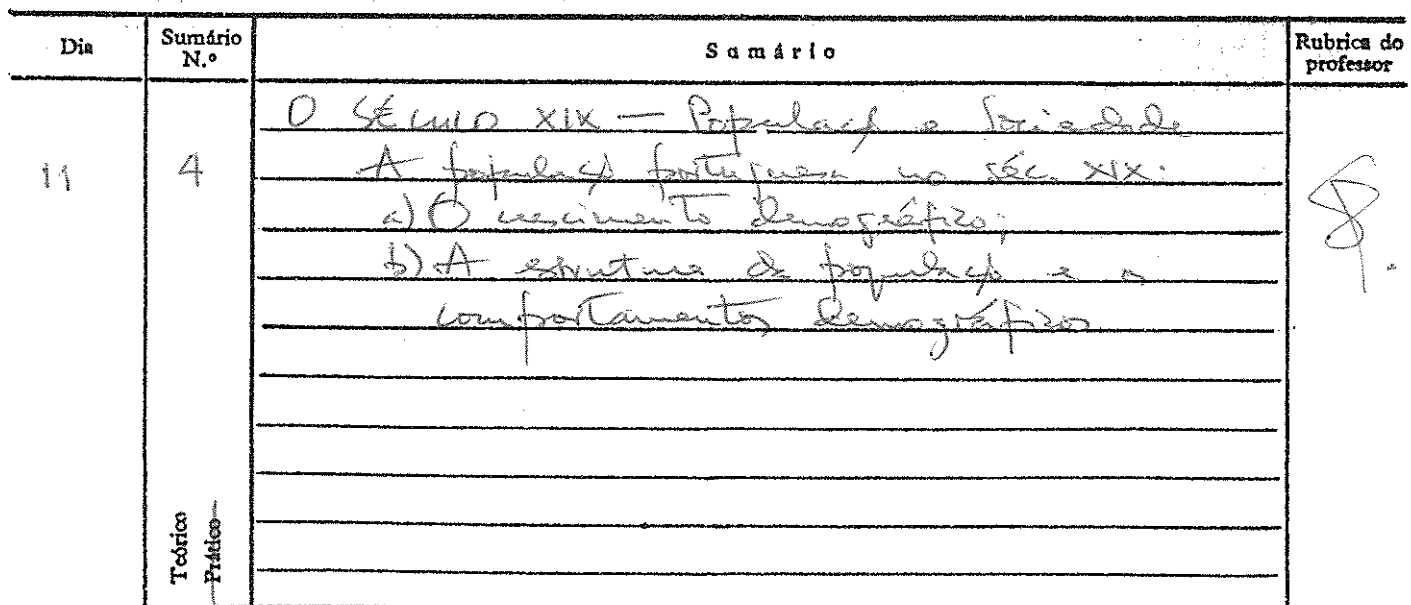 Dia Sumário N.º Sumário Rubrica do professor
O SÉCULO XIX — População e Sociedade
11 4 A população portuguesa no séc. XIX:
a) O crescimento demográfico;
b) A estrutura da população e os
comportamentos demográficos
Teórico
Prático